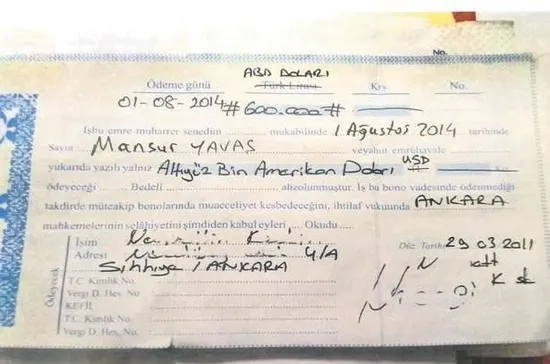 No.
ABD DOLARI
Ödeme günü Türk Lirası Krş. No.
01-08-2014 #600.000#
İşbu emre muharrer senedim mukabilinde 1 Ağustos 2014 tarihinde
Sayın Mansur YAVAŞ veyahut emrühavale
yukarıda yazılı yalnız Altıyüz Bin Amerikan Doları USD
ödeyeceği Bedeli ahzolunmuştur. İş bu bono vadesinde ödenmediği
takdirde müteakip bonolarında muacceliyet kesbedeceğini, ihtilaf vukuunda ANKARA
mahkemelerinin selâhiyetini şimdiden kabul eyleri Okudu
İsim
Adresi 4/A
Sıhhiye / ANKARA
Düz. Tarihi 29 03 2011
Ödeyecek
T.C. Kimlik No.
Vergi D. Hes. No
KEFİL
T.C. Kimlik No.
Vergi D. Hes. No.